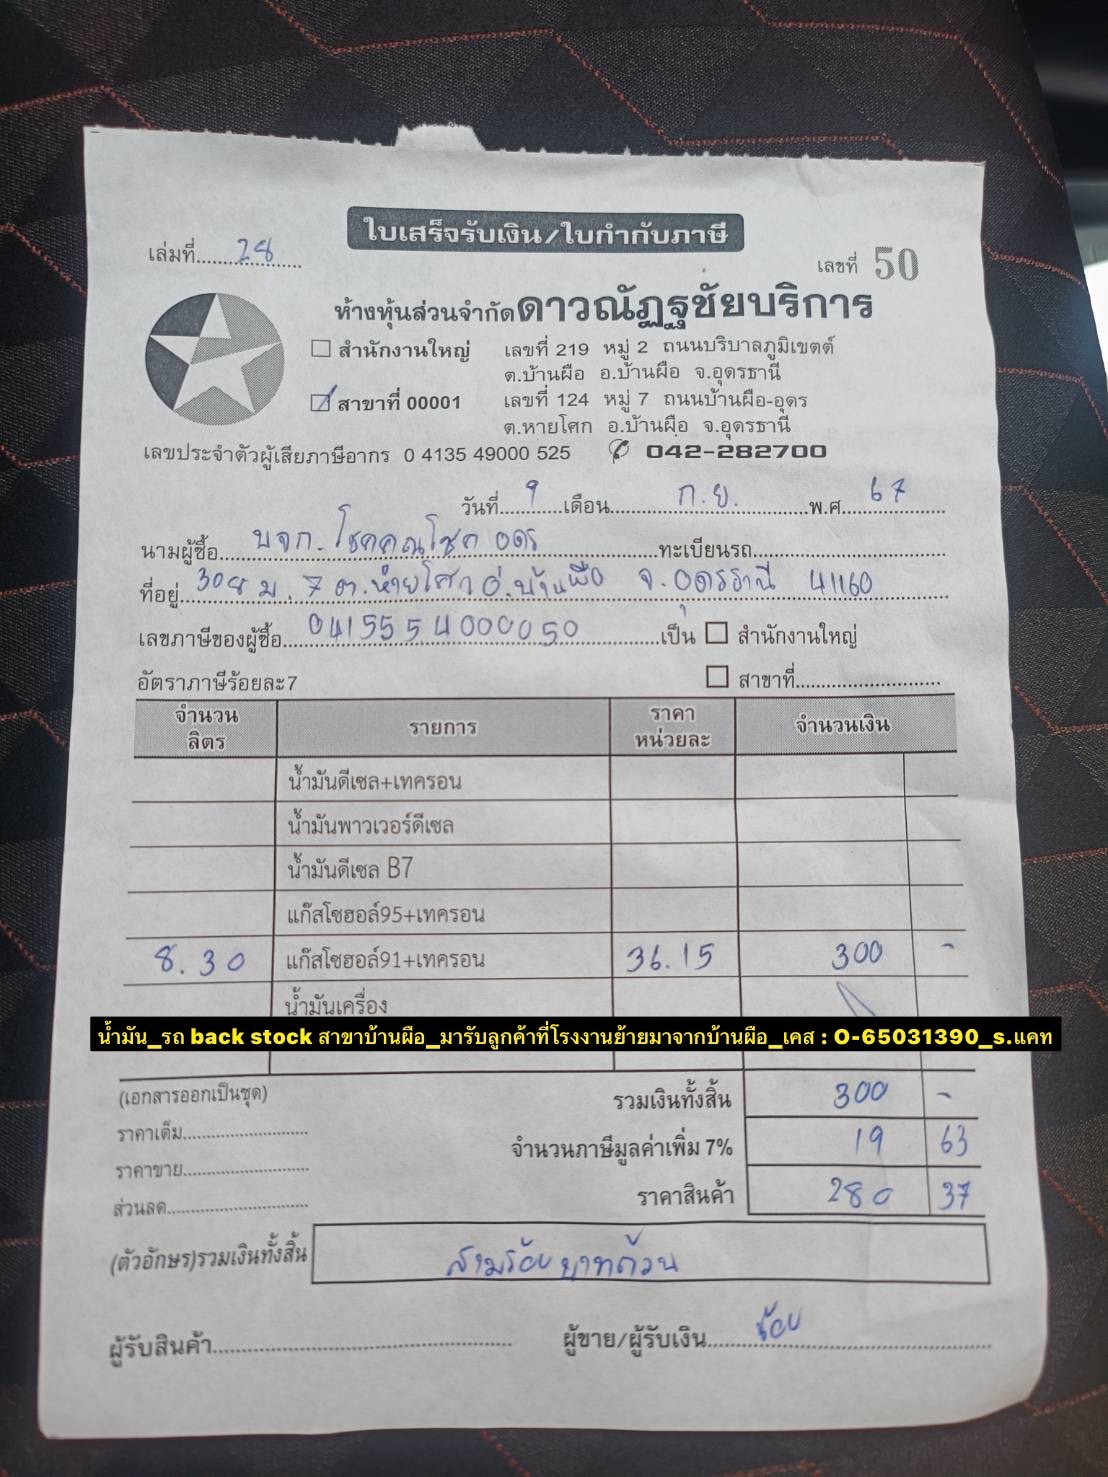 ใบเสร็จรับเงิน/ใบกำกับภาษี
เล่มที่ 28
เลขที่ 50
ห้างหุ้นส่วนจำกัดดาวณัฏฐชัยบริการ
สำนักงานใหญ่ เลขที่ 219 หมู่ 2 ถนนบริบาลภูมิเขตต์
ต.บ้านผือ อ.บ้านผือ จ.อุดรธานี
สาขาที่ 00001 เลขที่ 124 หมู่ 7 ถนนบ้านผือ-อุดร
ต.หายโศก อ.บ้านผือ จ.อุดรธานี
เลขประจำตัวผู้เสียภาษีอากร 0 4135 49000 525 042-282700
วันที่ 9 เดือน ก.ย. พ.ศ. 67
นามผู้ซื้อ บจก. โชคคูณโชค อุดร ทะเบียนรถ
ที่อยู่ 308 ม. 7 ต.หายโศก อ.บ้านผือ จ.อุดรธานี 41160
เลขภาษีของผู้ซื้อ 0415554000050 เป็น สำนักงานใหญ่
อัตราภาษีร้อยละ7 สาขาที่
จำนวนลิตร รายการ ราคาหน่วยละ จำนวนเงิน
น้ำมันดีเซล+เทครอน
น้ำมันพาวเวอร์ดีเซล
น้ำมันดีเซล B7
แก๊สโซฮอล์95+เทครอน
8.30 แก๊สโซฮอล์91+เทครอน 36.15 300 -
น้ำมันเครื่อง
น้ำมัน_รถ back stock สาขาบ้านผือ_มารับลูกค้าที่โรงงานย้ายมาจากบ้านผือ_เคส : O-65031390_s.แคท
(เอกสารออกเป็นชุด) รวมเงินทั้งสิ้น 300 -
ราคาเต็ม จำนวนภาษีมูลค่าเพิ่ม 7% 19 63
ราคาขาย ราคาสินค้า 280 37
ส่วนลด
(ตัวอักษร)รวมเงินทั้งสิ้น สามร้อยบาทถ้วน
ผู้รับสินค้า ผู้ขาย/ผู้รับเงิน